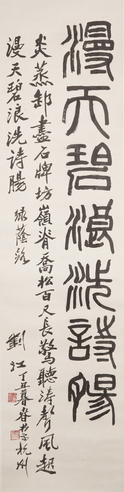 漫天碧浪洗詩腸
炎蒸卸盡石牌坊嶺脊喬松百又長驚聽濤聲風起
漫天碧浪洗詩腸 綠蔭
劉江 丁丑暮春於杭州